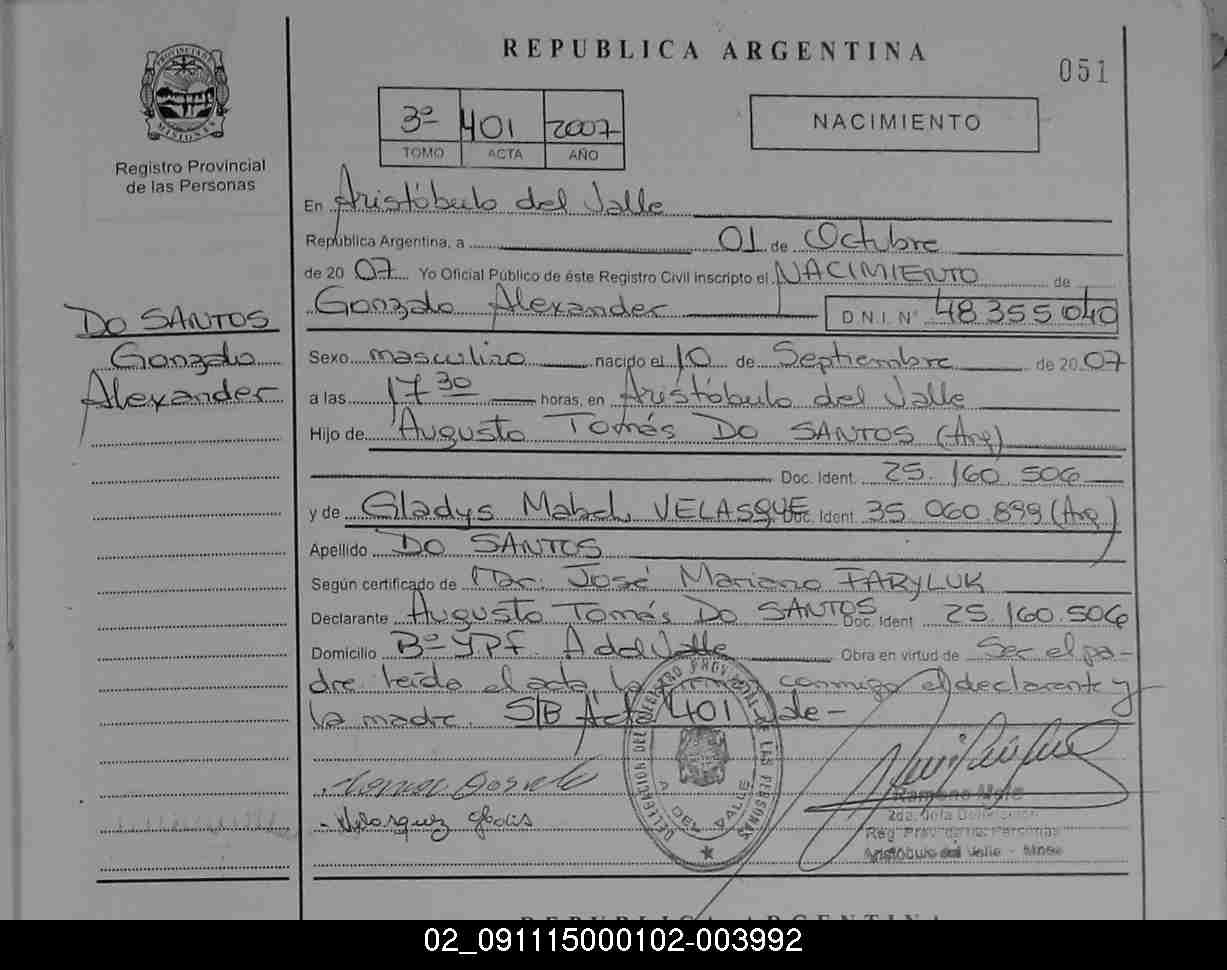 REPUBLICA ARGENTINA
051
PROVINCIA DE MISIONES
Registro Provincial
de las Personas
3º 401 2007
TOMO ACTA AÑO
NACIMIENTO
En Aristóbulo del Valle
República Argentina, a 01 de Octubre
de 2007 Yo Oficial Público de éste Registro Civil inscripto el NACIMIENTO de
Gonzalo Alexander D.N.I. Nº 48 355 040
DO SANTOS
Gonzalo
Alexander
Sexo masculino nacido el 10 de Septiembre de 2007
a las 17 30 horas, en Aristóbulo del Valle
Hijo de Augusto Tomás DO SANTOS (Arg)
Doc. Ident. 25.160.506
y de Gladys Mabel VELASQUE Doc. Ident. 35 060.899 (Arg)
Apellido DO SANTOS
Según certificado de José Mariano FARYLUK
Declarante Augusto Tomás DO SANTOS Doc. Ident 25.160.506
Domicilio Bº YPF. A del Valle Obra en virtud de Ser el pa-
dre leida el acta, la firma conmigo el declarante y
la madre. S/B Act 401 Vale-
DELEGACION DEL REGISTRO PROVINCIAL DE LAS PERSONAS
A. DEL VALLE
Reg. Prov. de las Personas
Aristóbulo del Valle - Mnes
REPUBLICA ARGENTINA
02_091115000102-003992